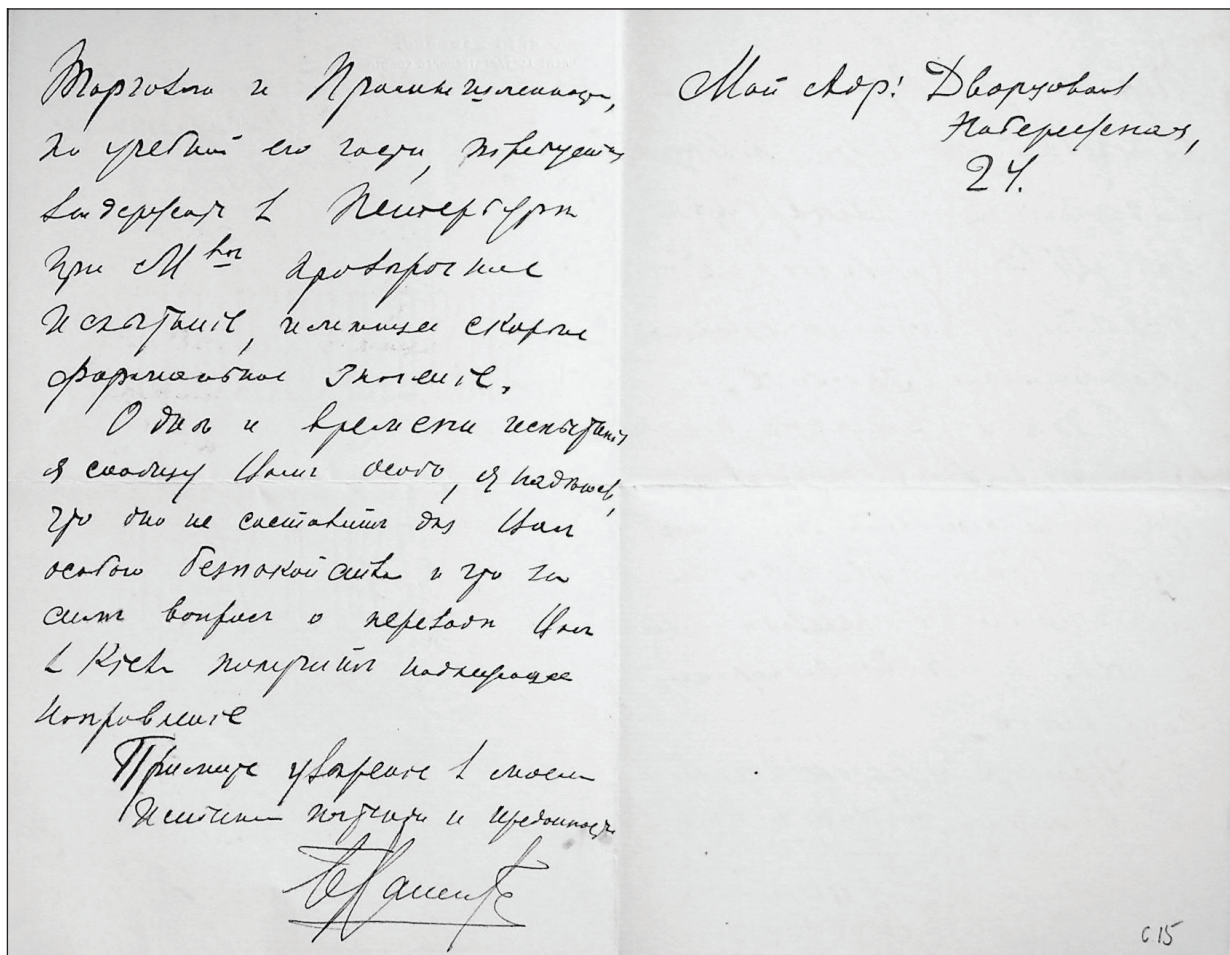 Торговли и Промышленности,
по учебной его части, потребуется
выдержать в Петербурге
при М^вѣ проверочное
испытаніе, имеющее скорее
формальное значеніе.
О дне и времени испытанія
я сообщу Вамъ особо, я надеюсь,
что оно не составитъ для Васъ
особого безпокойства и что за
симъ вопросъ о переводе Васъ
в Кіевъ получитъ надлежащее
направленіе
Примите уверенье в моемъ
истинномъ почтеніи и преданности
Мой Адр: Дворцовая
Набережная,
24.
с 15